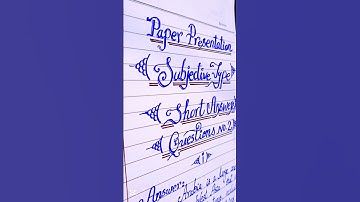 Paper Presentation
Subjective Type
Short Answer
Questions no 2
1
Answer:
Arabia is a